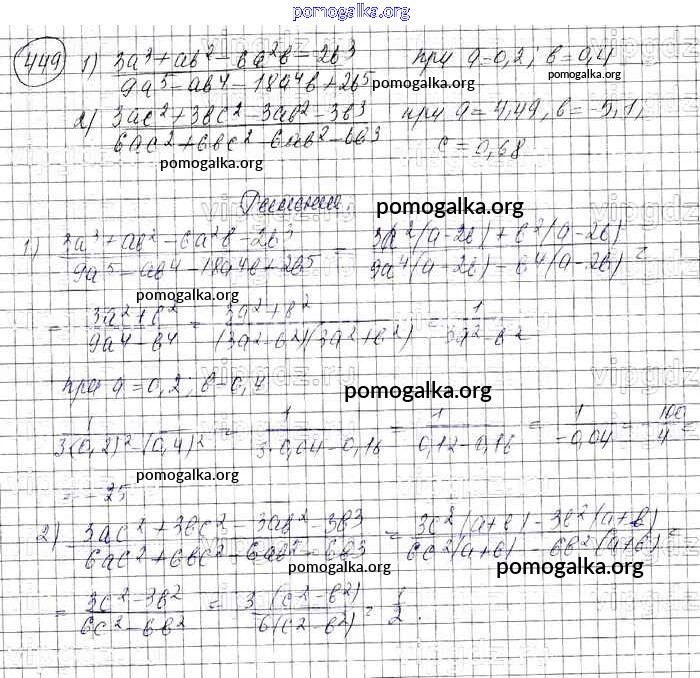 pomogalka.org
449 1) (3a³+ab²-6a²b-2b³)/(9a⁵-ab⁴-18a⁴b+2b⁵) при a=0,2; b=0,4
pomogalka.org
pomogalka.org
2) (3ac²+3bc²-3ab²-3b³)/(6ac²+6bc²-6ab²-6b³) при a=4,49, b=-5,1,
c=0,68
pomogalka.org
Решение.
pomogalka.org
1) (3a³+ab²-6a²b-2b³)/(9a⁵-ab⁴-18a⁴b+2b⁵) = (3a²(a-2b)+b²(a-2b))/(9a⁴(a-2b)-b⁴(a-2b)) =
pomogalka.org
= (3a²+b²)/(9a⁴-b⁴) = (3a²+b²)/((3a²-b²)(3a²+b²)) = 1/(3a²-b²)
vipgdz.ru
при a=0,2; b=0,4
pomogalka.org
1/(3(0,2)²-(0,4)²) = 1/(3·0,04-0,16) = 1/(0,12-0,16) = 1/(-0,04) = -100/4 =
pomogalka.org
= -25
2) (3ac²+3bc²-3ab²-3b³)/(6ac²+6bc²-6ab²-6b³) = (3c²(a+b)-3b²(a+b))/(6c²(a+b)-6b²(a+b)) =
pomogalka.org
pomogalka.org
= (3c²-3b²)/(6c²-6b²) = 3(c²-b²)/6(c²-b²) = 1/2.
pomogalka.org